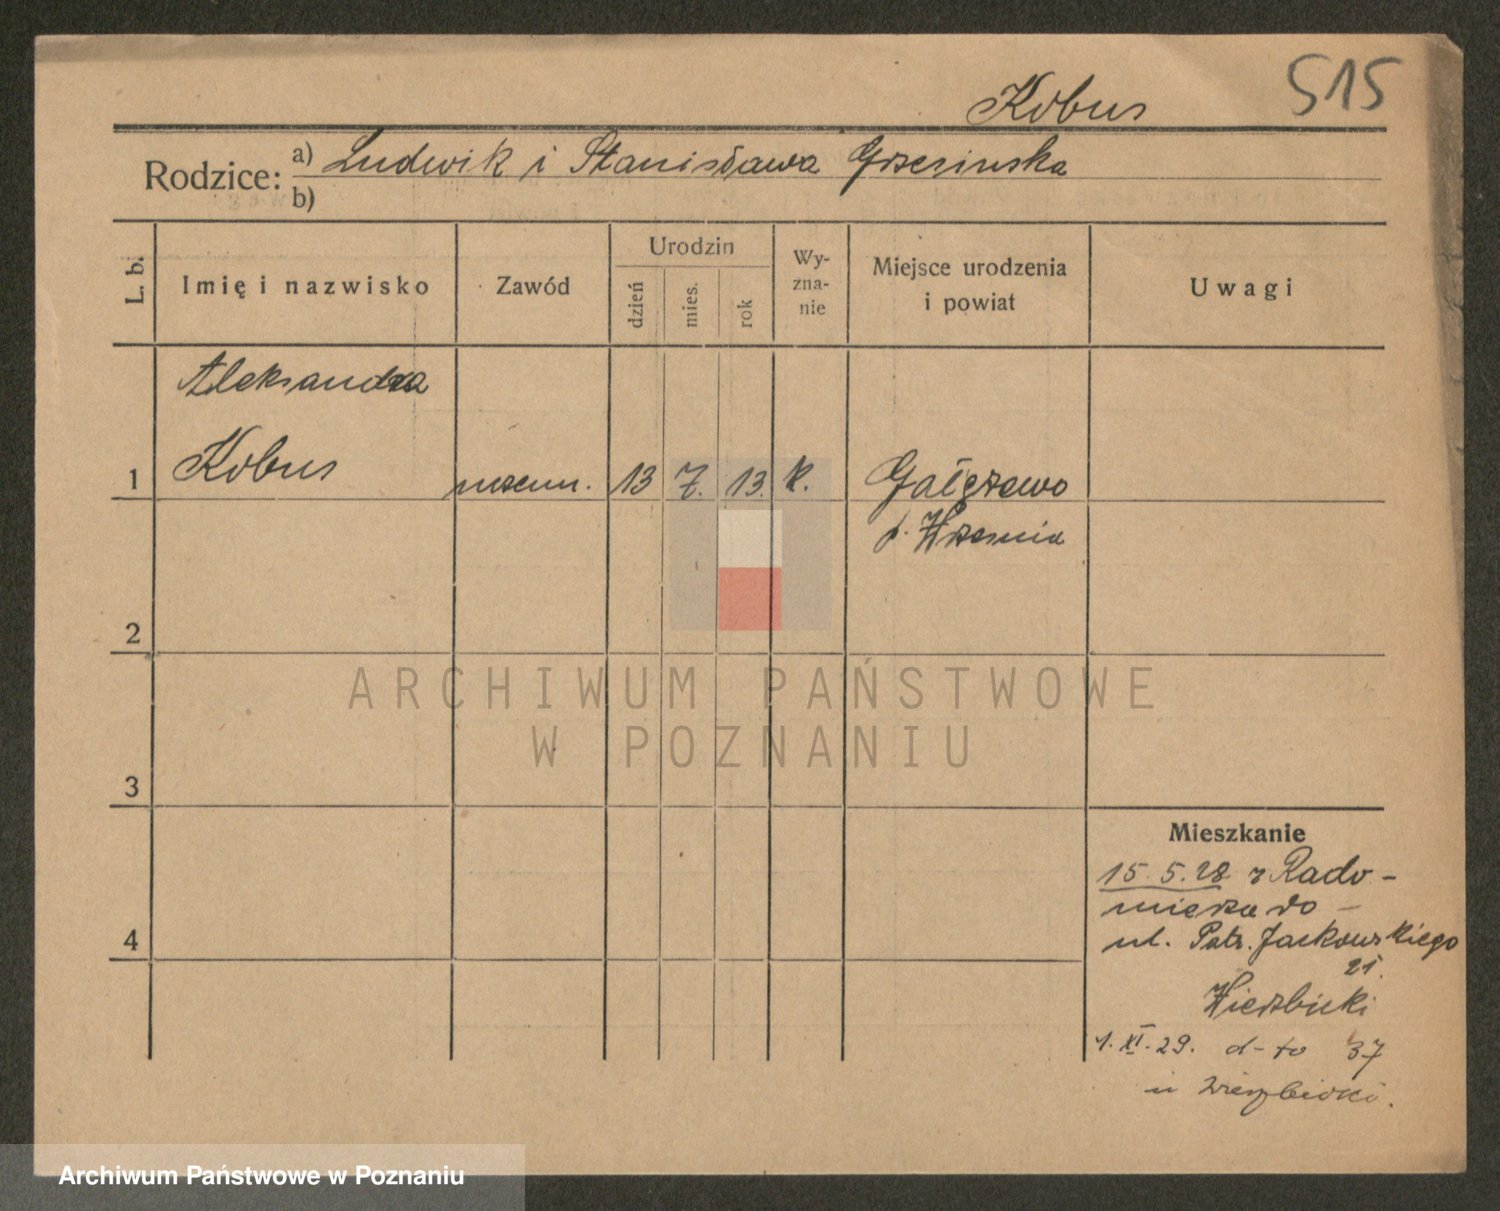 515
Kobus
Rodzice: a) Ludwik i Stanisława Grzesinska
b)
L. b.
Imię i nazwisko
Zawód
Urodzin
dzień
mies.
rok
Wy-
zna-
nie
Miejsce urodzenia
i powiat
Uwagi
Aleksandra
1 Kobus uczenn. 13 7. 13. k. Gałęzewo
p. Wrzesnia
2
ARCHIWUM PAŃSTWOWE
W POZNANIU
3
Mieszkanie
15.5.28 z Rado-
mierza do -
4
ul. Patr. Jackowskiego
21.
Wierzbicki
1. XI. 29. d-to 37
u Wierzbicki.
Archiwum Państwowe w Poznaniu